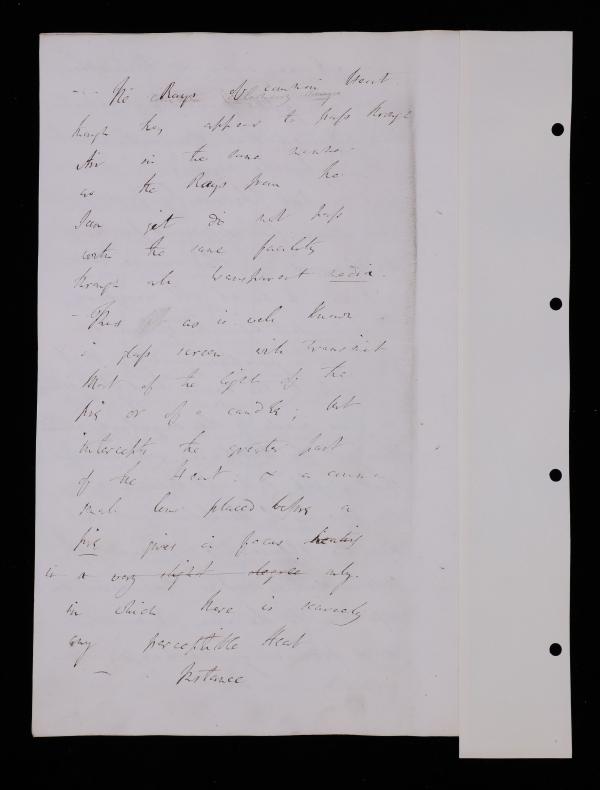 --- The Rays of common Heat
though they appear to pass through
Air in the same manner
as the Rays from the
Sun yet do not pass
with the same facility
through other transparent media.
- Thus as is well known
a glass screen will transmit
Most of the light of the
fire or of a candle; but
intercepts the greater part
of the Heat: & a common
small lens placed before a
fire gives a focus heating
in a very slight degree only.
in which there is scarcely
any perceptible Heat
— Instance